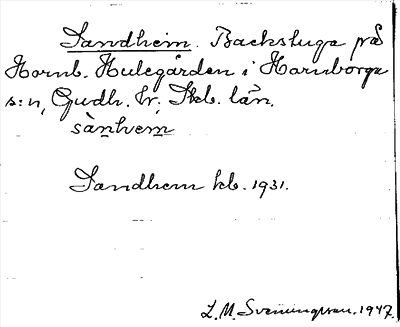 Sandhem. Backstuga på
Hornb. Hulegården i Hornborga
s:n, Gudh. hr; Skb. län.
sànhvem
Sandhem kb. 1931.
L. M. Svenungsson. 1947.